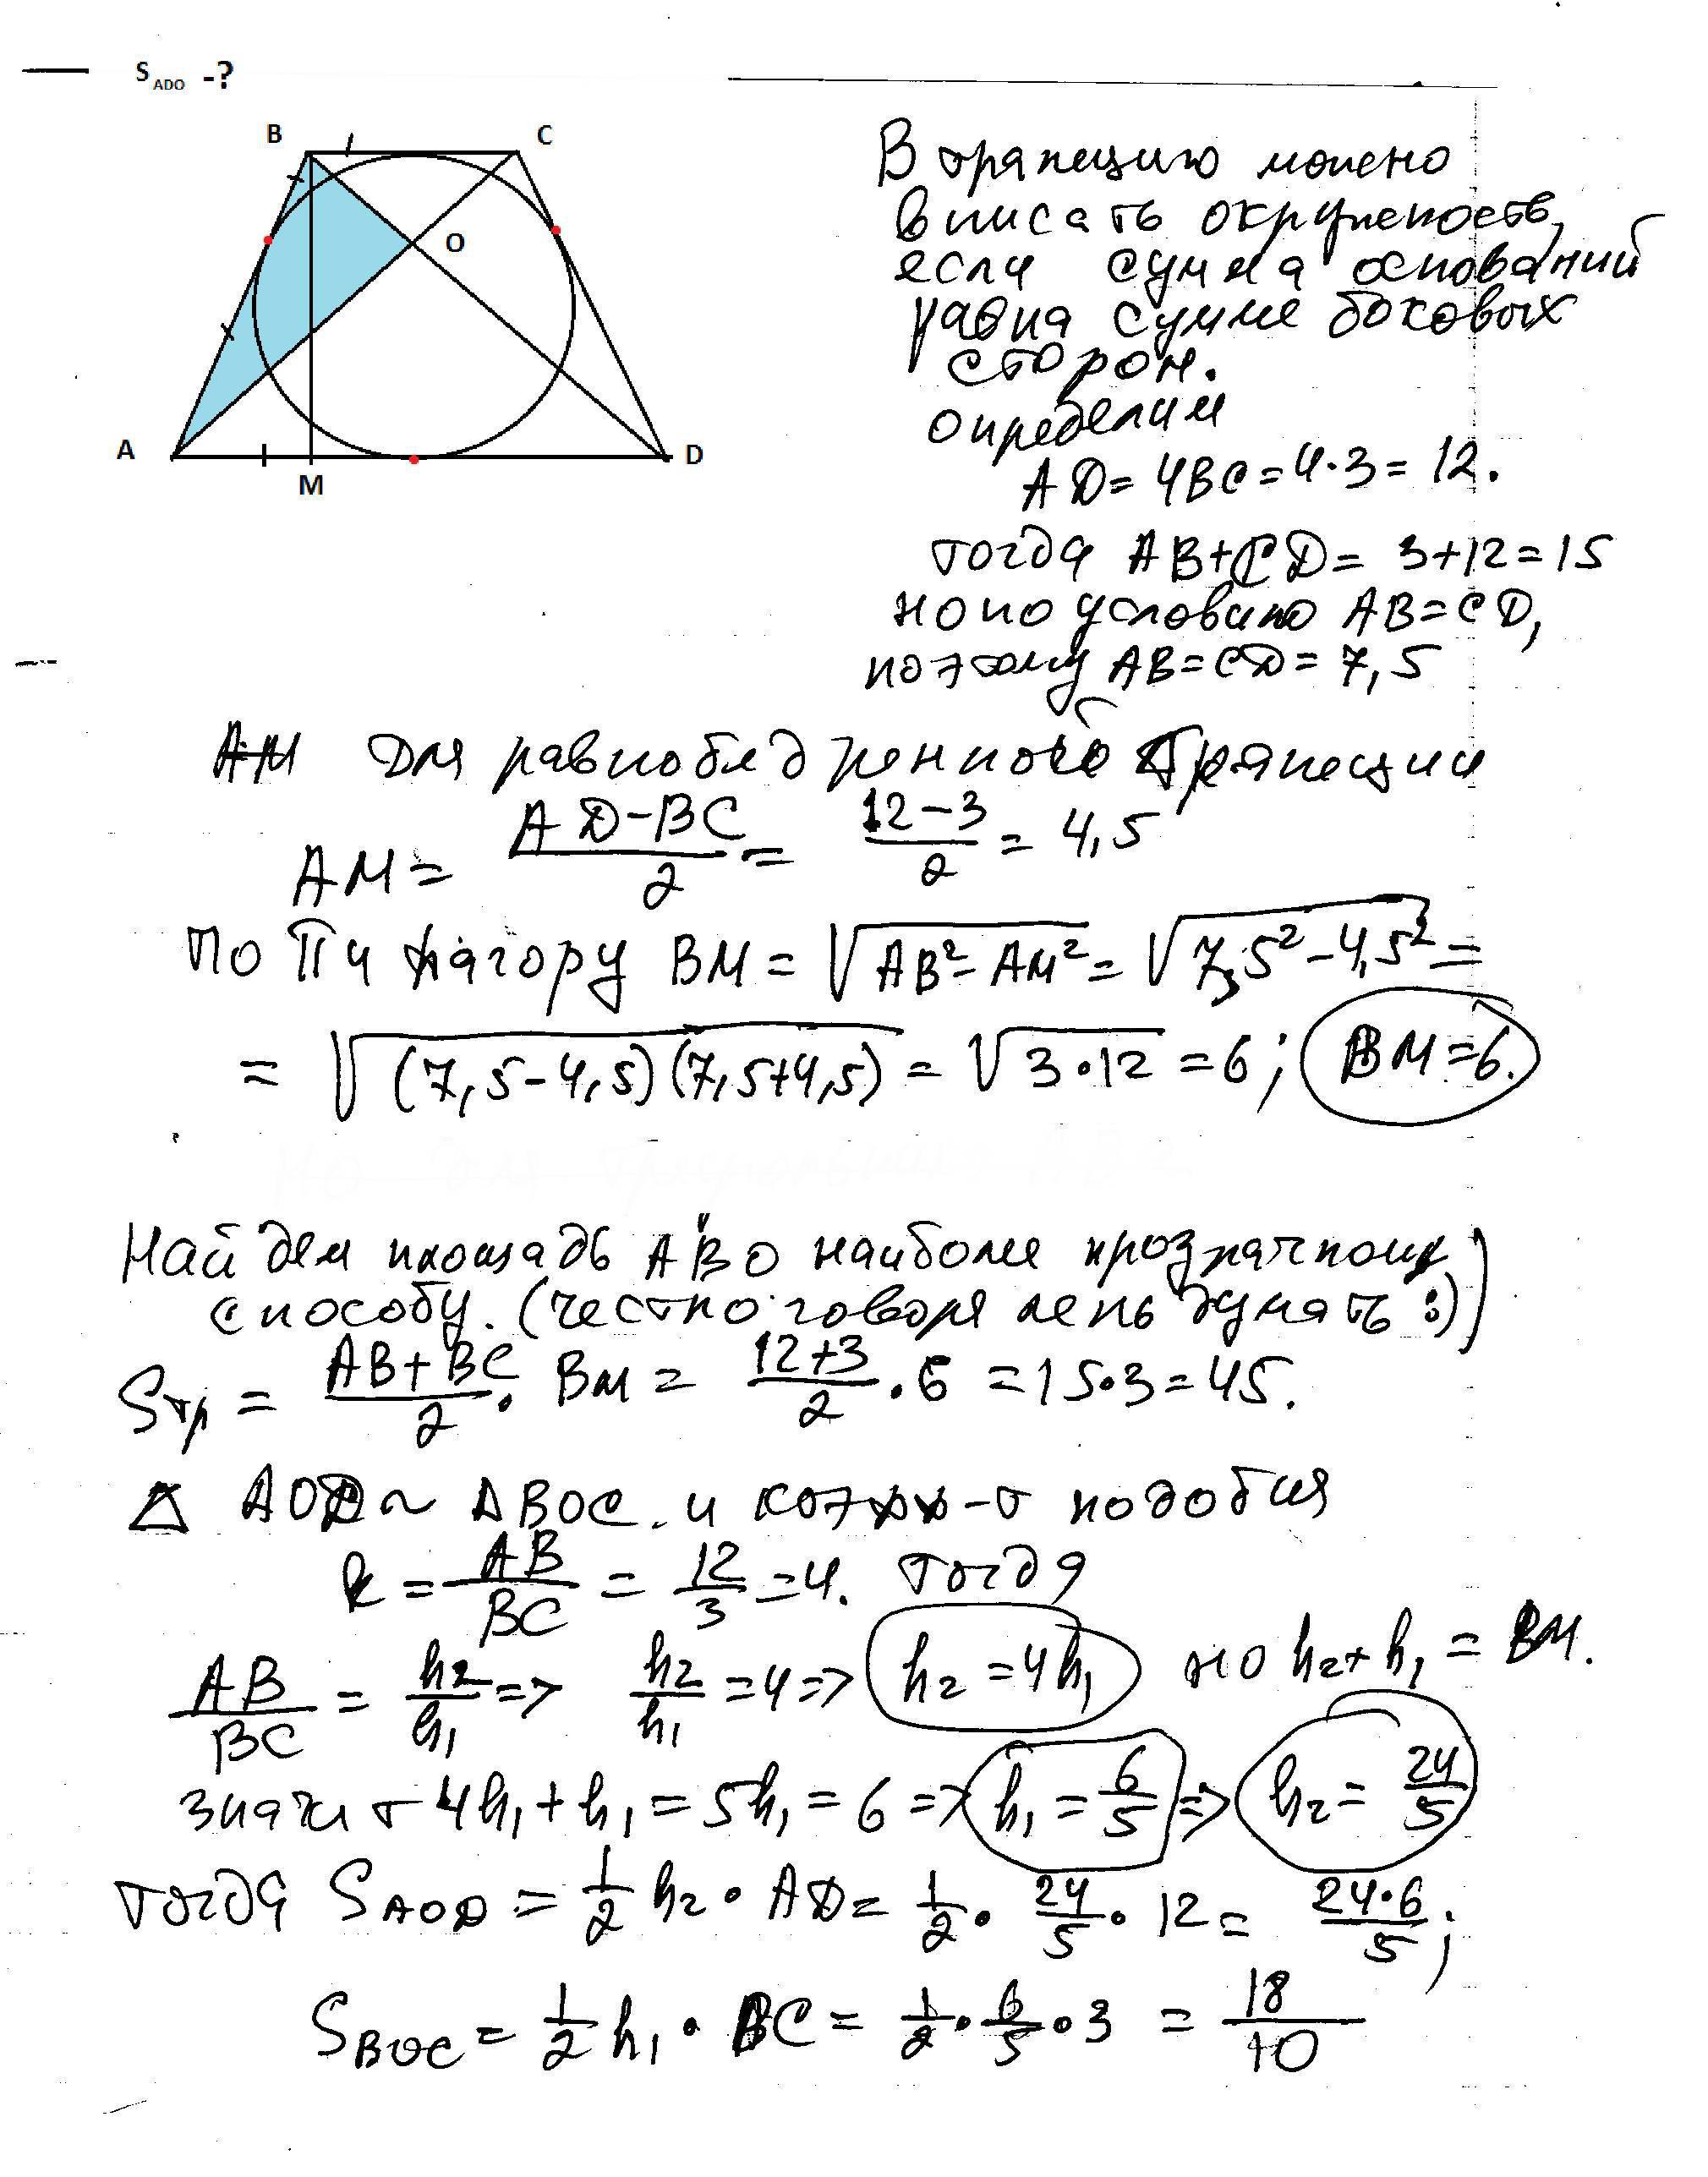 S ADO -?
B
C
O
A
M
D
В трапецию можно
вписать окружность,
если сумма оснований
равна сумме боковых
сторон.
определим
AD = 4BC = 4·3 = 12.
тогда AB+CD = 3+12 = 15
но по условию AB=CD,
поэтому AB=CD= 7,5
Для равнобедренной трапеции
AM = (AD-BC)/2 = (12-3)/2 = 4,5
По Пифагору BM = √(AB²-AM²) = √(7,5²-4,5²) =
= √((7,5-4,5)(7,5+4,5)) = √(3·12) = 6; BM=6.
Найдем площадь ABO наиболее прозрачному
способу. (честно говоря лень думать :))
Sтр = (AB+BC)/2 · BM = (12+3)/2 · 6 = 15·3 = 45.
△ AOD ~ △BOC. и коэфф-т подобия
k = AB/BC = 12/3 = 4. тогда
AB/BC = h₂/h₁ => h₂/h₁ = 4 => h₂ = 4h₁ но h₂+h₁ = BM.
значит 4h₁+h₁ = 5h₁ = 6 => h₁ = 6/5 => h₂ = 24/5
тогда SAOD = 1/2 h₂ · AD = 1/2 · 24/5 · 12 = 24·6/5;
SBOC = 1/2 h₁ · BC = 1/2 · 6/5 · 3 = 18/10